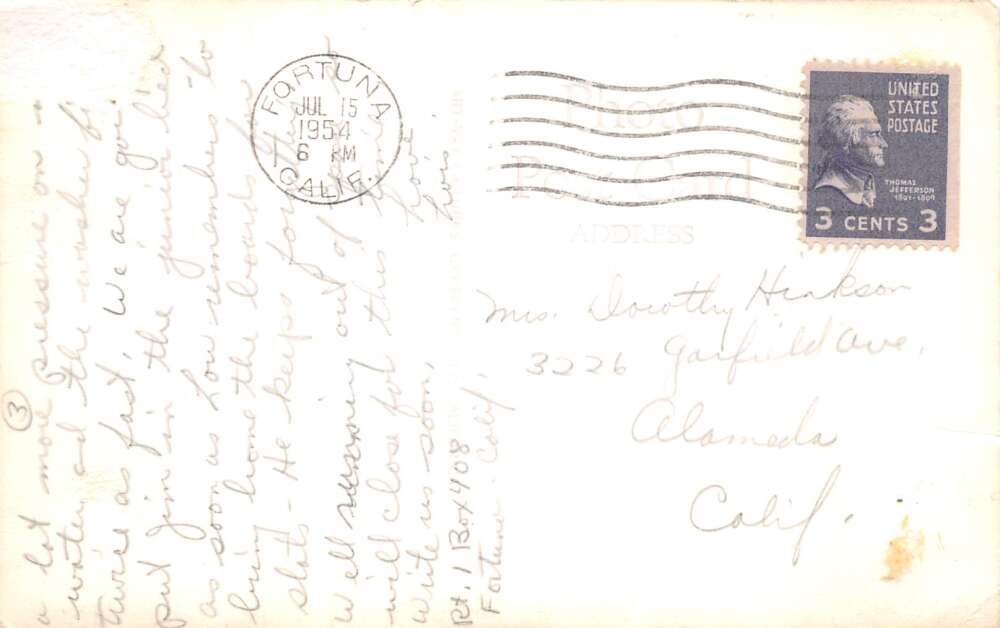 ③
a lot more pressure on
water, and the washer
twice as fast. We are goi
put Jim in the junior bed
as soon as Lou remembers to
bring home the boards for
slats - He keeps forgetting
Well running out of
will close for this time
write us soon,
Love
Lois
Rt. 1 Box 408
Fortuna - Calif.
FORTUNA
JUL 15
1954
6 PM
CALIF.
Photo
Post Card
ADDRESS
UNITED
STATES
POSTAGE
THOMAS
JEFFERSON
1801-1809
3 CENTS 3
Mrs. Dorothy Hinkson
3226 Garfield Ave.
Alameda
Calif.